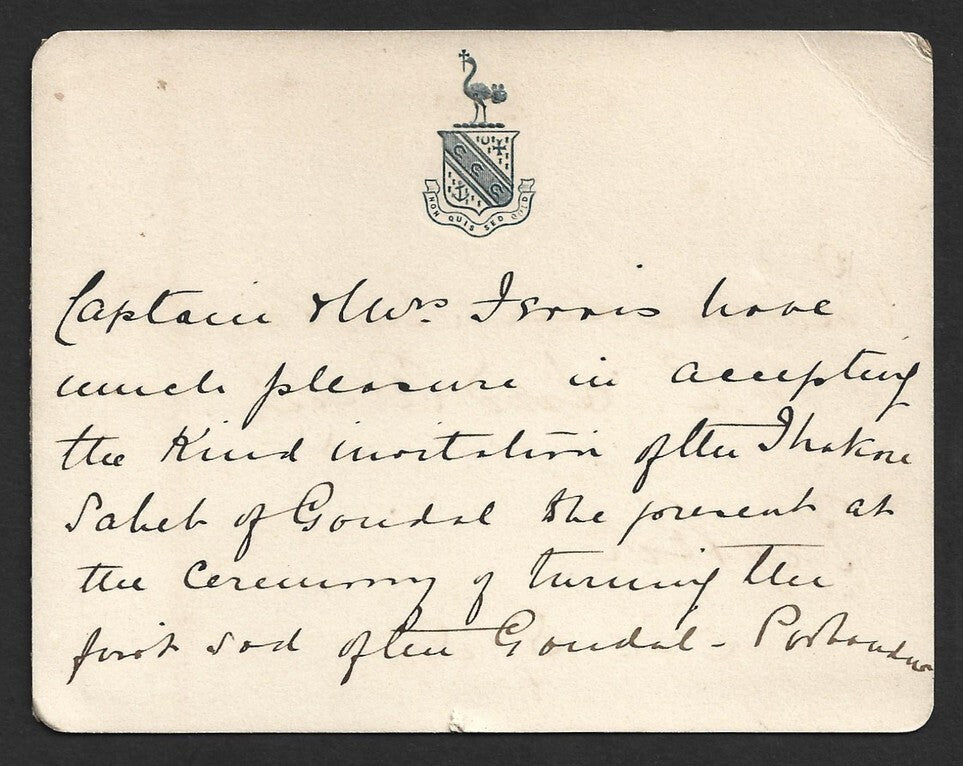 NON QUIS SED QUID
Captain & Mrs. Ferris have
much pleasure in accepting
the Kind invitation of the Thakore
Saheb of Gondal to be present at
the Ceremony of turning the
first sod of the Gondal - Porbandar